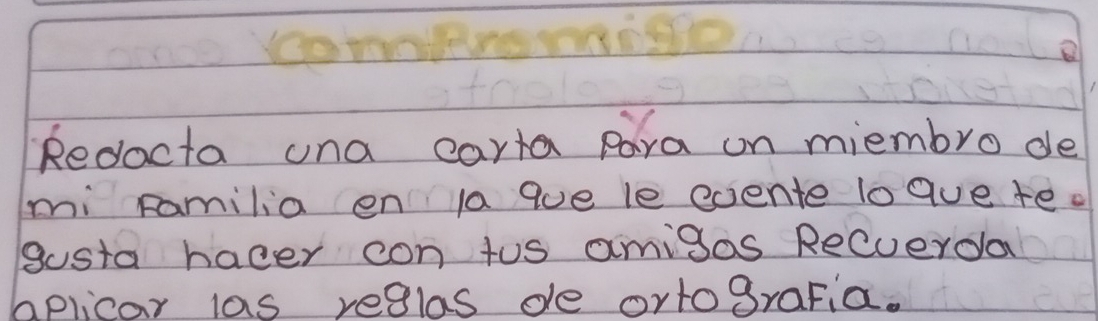 compromiso
Redacta una carta Para un miembro de
mi Familia en la que le cuente lo que te
gusta hacer con tus amigos Recuerda
aplicar las reglas de ortografia.